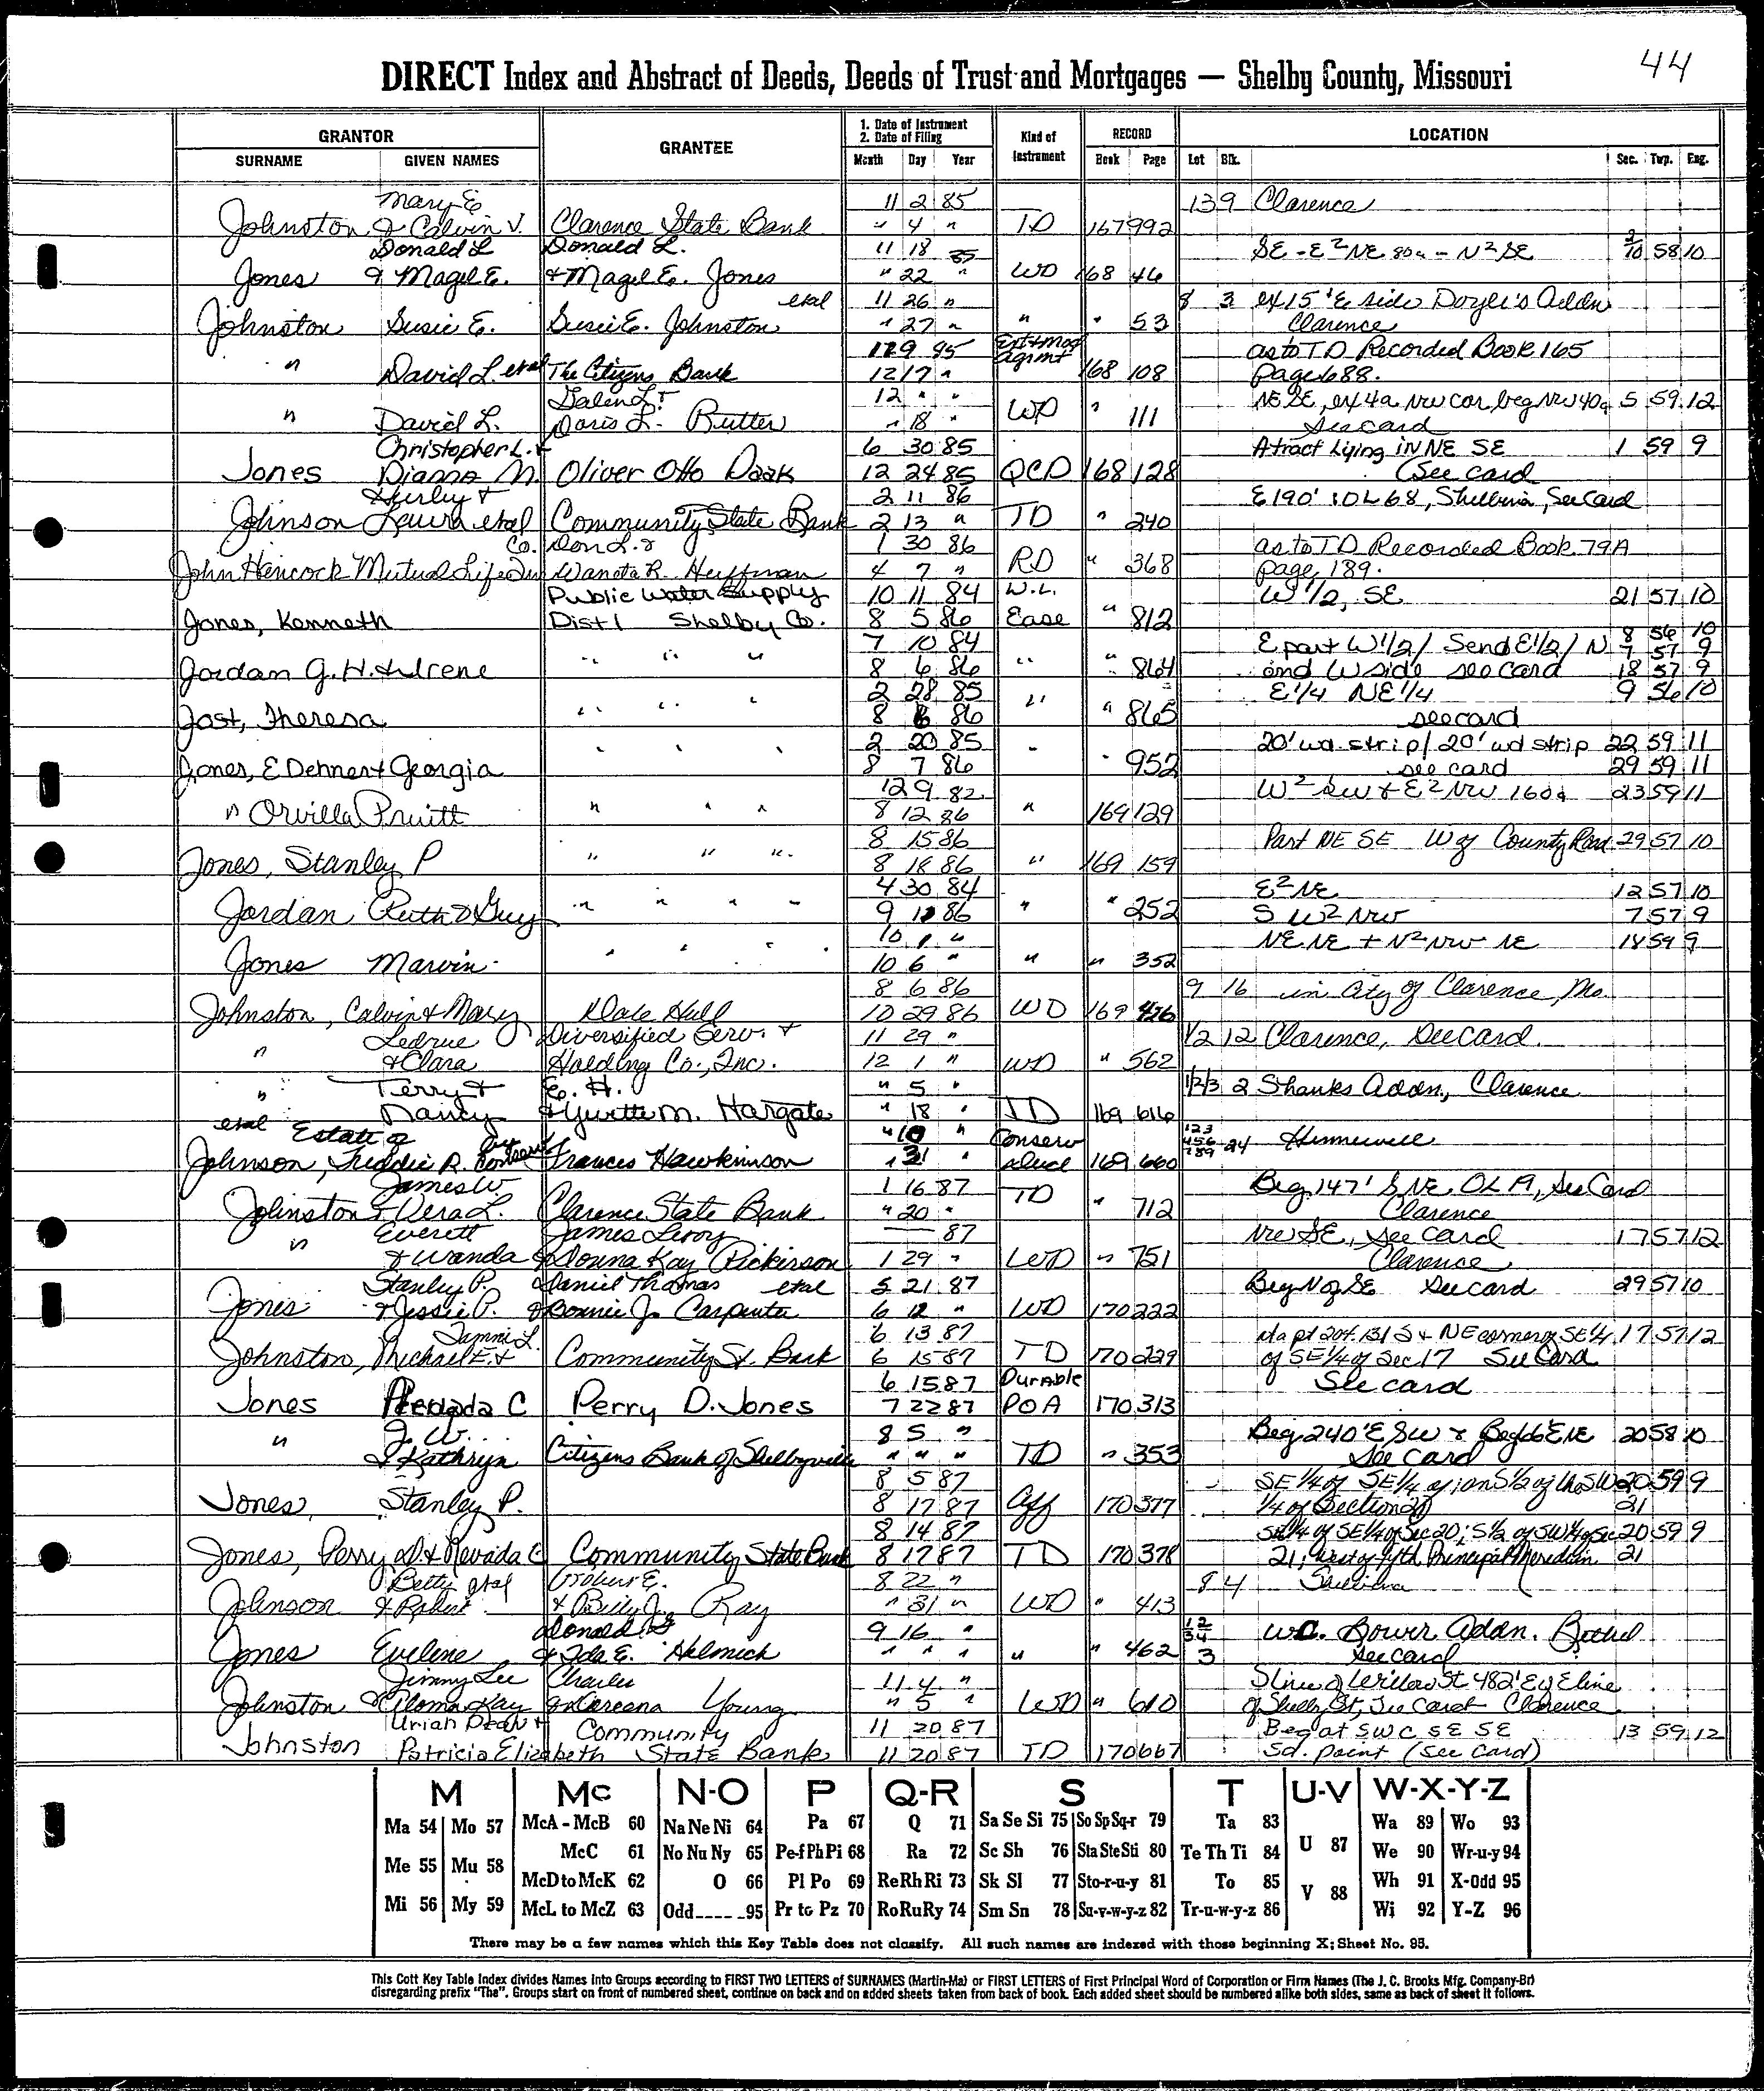 44
DIRECT Index and Abstract of Deeds, Deeds of Trust and Mortgages — Shelby County, Missouri
GRANTOR GRANTEE 1. Date of Instrument 2. Date of Filing Kind of Instrument RECORD LOCATION
SURNAME GIVEN NAMES Month Day Year Book Page Lot Blk. Sec. Twp. Rng.
Mary E 11 2 85 139 Clarence
Johnston & Calvin V. Clarence State Bank " 4 " TD 167 992
Donald L Donald L. 11 18 85 SE - E² NE 80a - N² SE 58 10
Jones & Magel E. & Magel E. Jones " 22 " WD 168 46
etal 11 26 " 8 3 ex 15' E side Doyle's Addn
Johnston Susie E. Susie E. Johnston " 27 " " " 53 Clarence
12 9 85 Ext & Mod as to TD Recorded Book 165
" David L. etal The Citizens Bank 12 17 " agrmt 168 108 page 688.
Galen L. & 12 " " NE SE, ex 4a NW cor, beg NW 40a 5 59 12
" David L. Doris L. Rutter " 18 " WD " 111 See card
Christopher L. & 6 30 85 A tract Lying IN NE SE 1 59 9
Jones Dianna M. Oliver Otto Daak 12 24 85 QCD 168 128 (See card
Hurley & 2 11 86 E 190' OL 68, Shelbina, See Card
Johnson Laura etal Community State Bank 2 13 " TD " 240
Co. Don L. & 1 30 86 as to TD Recorded Book 79A
John Hancock Mutual Life Ins Waneta R. Huffman 4 7 " RD " 368 page 189.
Public Water Supply 10 11 84 W.L. W 1/2, SE 21 57 10
Jones, Kenneth Dist 1 Shelby Co. 8 5 86 Ease " 812
7 10 84 E part W 1/2 / S end E 1/2 / N 8 56 10
7 57 9
Jordan G. H. & Irene " " " 8 6 86 " " 864 end W side see card 18 57 9
2 28 85 E 1/4 NE 1/4 9 56 10
Jost, Theresa " " " 8 6 86 " " 865 see card
2 20 85 20' wd strip / 20' wd strip 22 59 11
Jones, E Dehner & Georgia " " " 8 7 86 " " 952 see card 29 59 11
12 9 82 W² SW & E² NW 160a 23 59 11
" Orvilla Pruitt " " " 8 12 86 " 169 129
8 15 86 Part NE SE W of County Road 29 57 10
Jones, Stanley P " " " 8 18 86 " 169 159
4 30 84 E² NE 12 57 10
Jordan Ruth & Guy " " " " 9 11 86 " " 252 S W² NW 7 57 9
10 1 " NE NE + N² NW NE 18 59 9
Jones Marvin " " " 10 6 " " " 352
8 6 86 9 16 in City of Clarence, Mo.
Johnston, Calvin & Mary Dale Hull 10 29 86 WD 169 426
Ledrue Diversified Serv. & 11 29 " 1/2 12 Clarence, See Card.
" & Clara Holding Co., Inc. 12 1 " WD " 562
" Terry & E. H. " 5 " 1/2/3 2 Shanks Addn, Clarence
etal Nancy & Yvette M. Hargate " 18 " TD 169 616
Estate of " 10 " Conserv 123 456 789 24 Hunnewell
Johnson, Freddie R. by Conserv Frances Hawkinson " 31 " deed 169 660
James W. 1 16 87 Beg 147' S NE, OL 19, See Card
Johnston & Vera L. Clarence State Bank " 20 " TD " 712 Clarence
" Everett James Leroy — 87 NW SE, See Card 17 57 12
& Wanda & Donna Kay Dickinson 1 29 " WD " 751 Clarence
Stanley P. Daniel Thomas etal 5 21 87 Beg N of SE See card 29 57 10
Jones & Jessie P. & Bonnie J. Carpenter 6 12 " WD 170 222
Tammi L. 6 13 87 At a pt 204.131 S + NE corner of SE 1/4 17 57 12
Johnston, Michael E. & Community St. Bank 6 15 87 TD 170 229 of SE 1/4 of Sec 17 See Card
6 15 87 Durable See card
Jones Nevada C Perry D. Jones 7 22 87 POA 170 313
" J. W. 8 5 " Beg 240' E SW & Beg 66' E NE 20 58 10
& Kathryn Citizens Bank of Shelbyville " " " TD " 353 See Card
8 5 87 SE 1/4 of SE 1/4 of; on S 1/2 of the SW 20 59 9
Jones, Stanley P. 8 17 87 Aff 170 377 1/4 of Section 21 21
8 14 87 SE 1/4 of SE 1/4 of Sec 20; S 1/2 of SW 1/4 of Sec 20 59 9
Jones, Perry D. & Nevada C Community State Bank 8 17 87 TD 170 378 21; West of fifth Principal Meridian 21
Betty etal Robert E. 8 22 " 8 4 Shelbina
Johnson & Robert & Billy J. Ray " 31 " WD " 413
Donald 9 16 " 1 2 3 4 W.C. Bower Addn. Bethel
Jones Eveline & Ida E. Helmick " " " " " 462 3 See Card
Jimmy Lee Charles 11 4 " S line of Willow St 482' E of E line
Johnston & Aloma Kay & Careena Young " 5 " WD " 610 of Shelby St, See Card Clarence
Uriah Dean & Community 11 20 87 Beg at SWC SE SE 13 59 12
Johnston Patricia Elizabeth State Bank 11 20 87 TD 170 667 Sd. point (See Card)
M Mc N-O P Q-R S T U-V W-X-Y-Z
Ma 54 Mo 57 McA - McB 60 Na Ne Ni 64 Pa 67 Q 71 Sa Se Si 75 So Sp Sq-r 79 Ta 83 U 87 Wa 89 Wo 93
Me 55 Mu 58 McC 61 No Nu Ny 65 Pe-f Ph Pi 68 Ra 72 Sc Sh 76 Sta Ste Sti 80 Te Th Ti 84 We 90 Wr-u-y 94
McD to McK 62 O 66 Pl Po 69 Re Rh Ri 73 Sk Sl 77 Sto-r-u-y 81 To 85 V 88 Wh 91 X-Odd 95
Mi 56 My 59 McL to McZ 63 Odd____95 Pr to Pz 70 Ro Ru Ry 74 Sm Sn 78 Su-v-w-y-z 82 Tr-u-w-y-z 86 Wi 92 Y-Z 96
There may be a few names which this Key Table does not classify. All such names are indexed with those beginning X; Sheet No. 95.
This Cott Key Table Index divides Names into Groups according to FIRST TWO LETTERS of SURNAMES (Martin-Ma) or FIRST LETTERS of First Principal Word of Corporation or Firm Names (The J. C. Brooks Mfg. Company-Br)
disregarding prefix "The". Groups start on front of numbered sheet, continue on back and on added sheets taken from back of book. Each added sheet should be numbered alike both sides, same as back of sheet it follows.